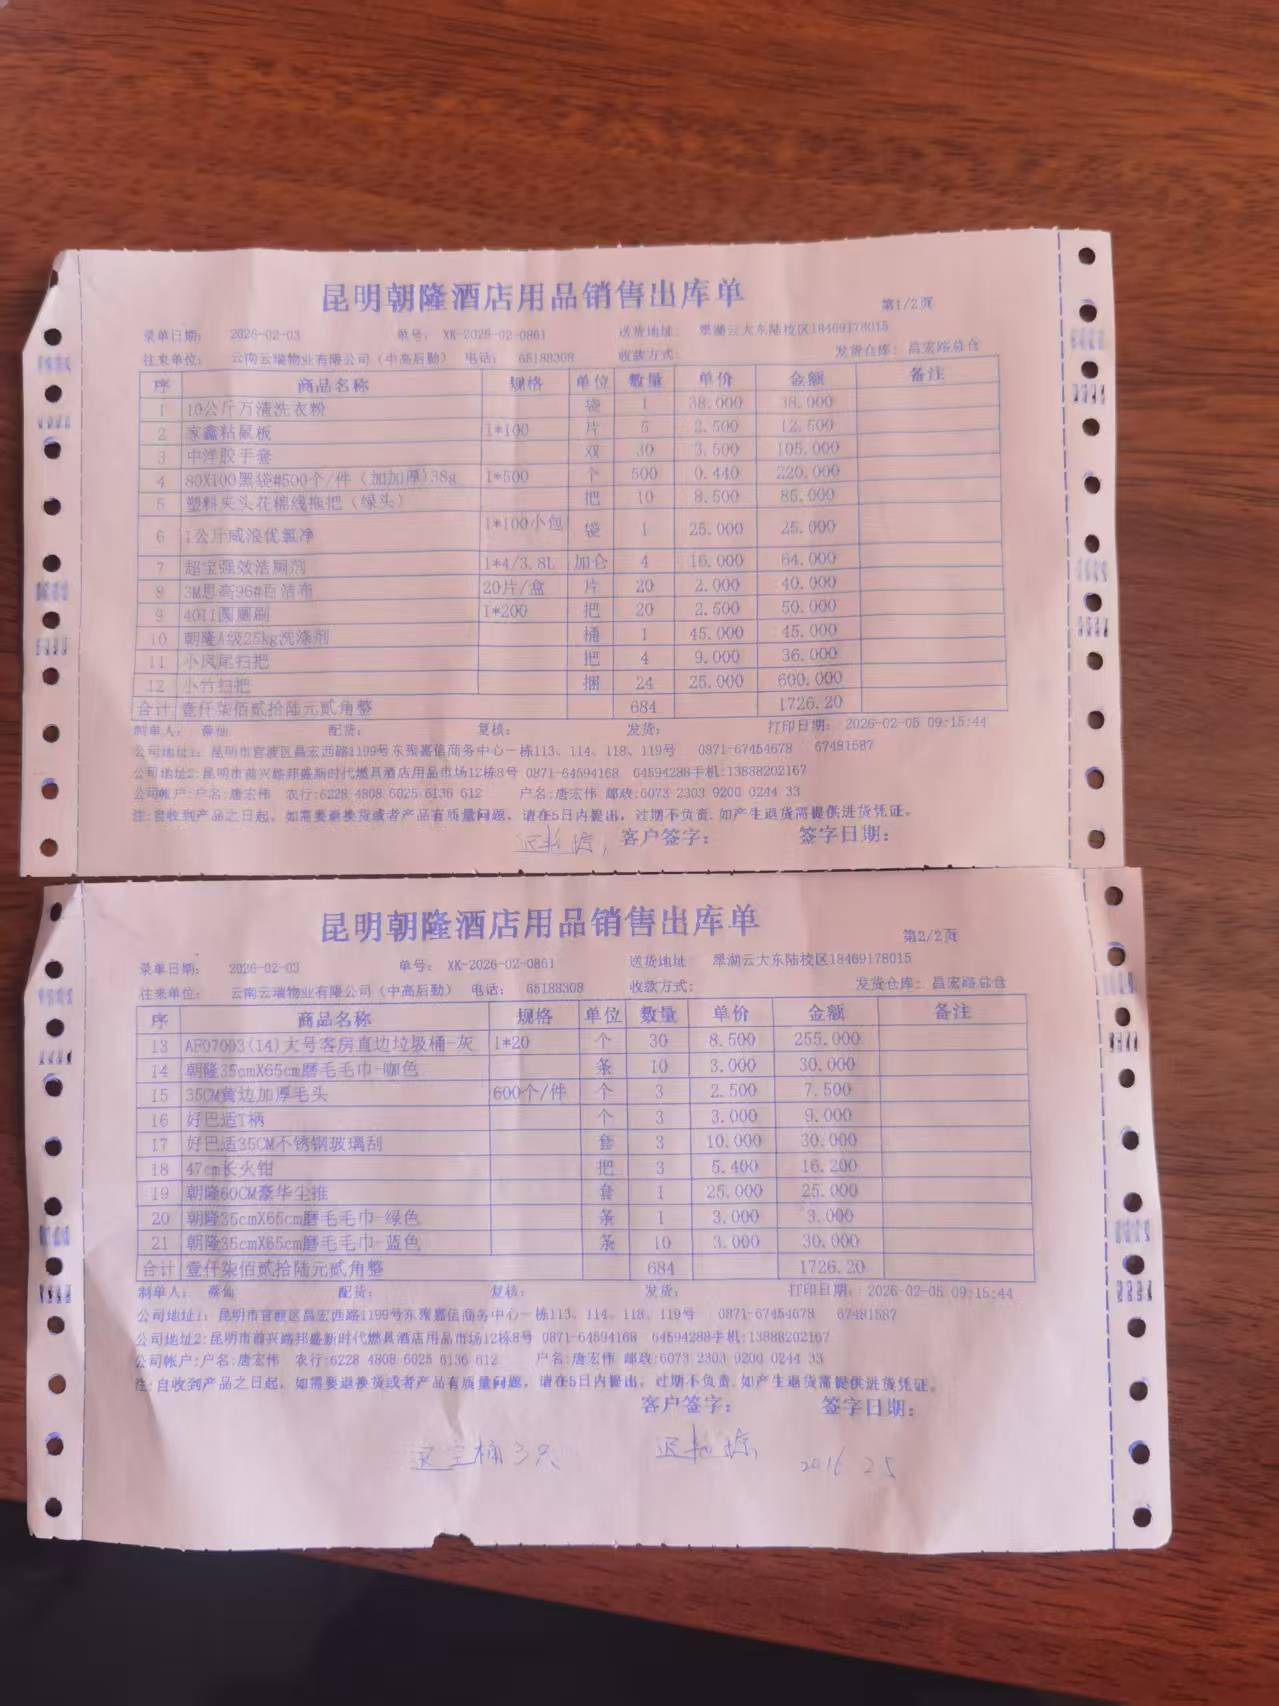 昆明朝隆酒店用品销售出库单
第1/2页
录单日期: 2026-02-03 单号: XK-2026-02-0861 送货地址: 翠湖云大东陆校区18469178015
往来单位: 云南云瑞物业有限公司(中高后勤) 电话: 65188308 收款方式: 发货仓库: 昌宏路总仓
序 商品名称 规格 单位 数量 单价 金额 备注
1 10公斤万清洗衣粉 袋 1 38.000 38.000
2 家鑫粘鼠板 1*100 片 5 2.500 12.500
3 中洋胶手套 双 30 3.500 105.000
4 80X100黑袋#500个/件(加加厚)38g 1*500 个 500 0.440 220.000
5 塑料夹头花棉线拖把(绿头) 把 10 8.500 85.000
6 1公斤威浪优氯净 1*100小包 袋 1 25.000 25.000
7 超宝强效洁厕剂 1*4/3.8L 加仑 4 16.000 64.000
8 3M思高96#百洁布 20片/盒 片 20 2.000 40.000
9 4011圆厕刷 1*200 把 20 2.500 50.000
10 朝隆A级25kg洗涤剂 桶 1 45.000 45.000
11 小凤尾扫把 把 4 9.000 36.000
12 小竹扫把 捆 24 25.000 600.000
合计 壹仟柒佰贰拾陆元贰角整 684 1726.20
制单人: 蔡仙 配货: 复核: 发货: 打印日期: 2026-02-05 09:15:44
公司地址1: 昆明市官渡区昌宏西路1199号东聚嘉信商务中心一栋113、114、118、119号 0871-67454678 67481587
公司地址2:昆明市前兴路邦盛新时代燃具酒店用品市场12栋8号 0871-64594168 64594288手机:13888202167
公司帐户:户名:唐宏伟 农行:6228 4808 6025 6136 612 户名:唐宏伟 邮政:6073 2303 9200 0244 33
注:自收到产品之日起,如需要退换货或者产品有质量问题,请在5日内提出,过期不负责.如产生退货需提供进货凭证。
客户签字: 签字日期:
昆明朝隆酒店用品销售出库单
第2/2页
录单日期: 2026-02-03 单号: XK-2026-02-0861 送货地址 翠湖云大东陆校区18469178015
往来单位: 云南云瑞物业有限公司(中高后勤) 电话: 65188308 收款方式: 发货仓库: 昌宏路总仓
序 商品名称 规格 单位 数量 单价 金额 备注
13 AF07003(14)大号客房直边垃圾桶-灰 1*20 个 30 8.500 255.000
14 朝隆35cmX65cm磨毛毛巾-咖色 条 10 3.000 30.000
15 35CM黄边加厚毛头 600个/件 个 3 2.500 7.500
16 好巴适T柄 个 3 3.000 9.000
17 好巴适35CM不锈钢玻璃刮 套 3 10.000 30.000
18 47cm长火钳 把 3 5.400 16.200
19 朝隆60CM豪华尘推 套 1 25.000 25.000
20 朝隆35cmX65cm磨毛毛巾-绿色 条 1 3.000 3.000
21 朝隆35cmX65cm磨毛毛巾-蓝色 条 10 3.000 30.000
合计 壹仟柒佰贰拾陆元贰角整 684 1726.20
制单人: 蔡仙 配货: 复核: 发货: 打印日期: 2026-02-05 09:15:44
公司地址1: 昆明市官渡区昌宏西路1199号东聚嘉信商务中心一栋113、114、118、119号 0871-67454678 67481587
公司地址2:昆明市前兴路邦盛新时代燃具酒店用品市场12栋8号 0871-64594168 64594288手机:13888202167
公司帐户:户名:唐宏伟 农行:6228 4808 6025 6136 612 户名:唐宏伟 邮政:6073 2303 9200 0244 33
注:自收到产品之日起,如需要退换货或者产品有质量问题,请在5日内提出,过期不负责.如产生退货需提供进货凭证。
客户签字: 签字日期:
退空桶3只